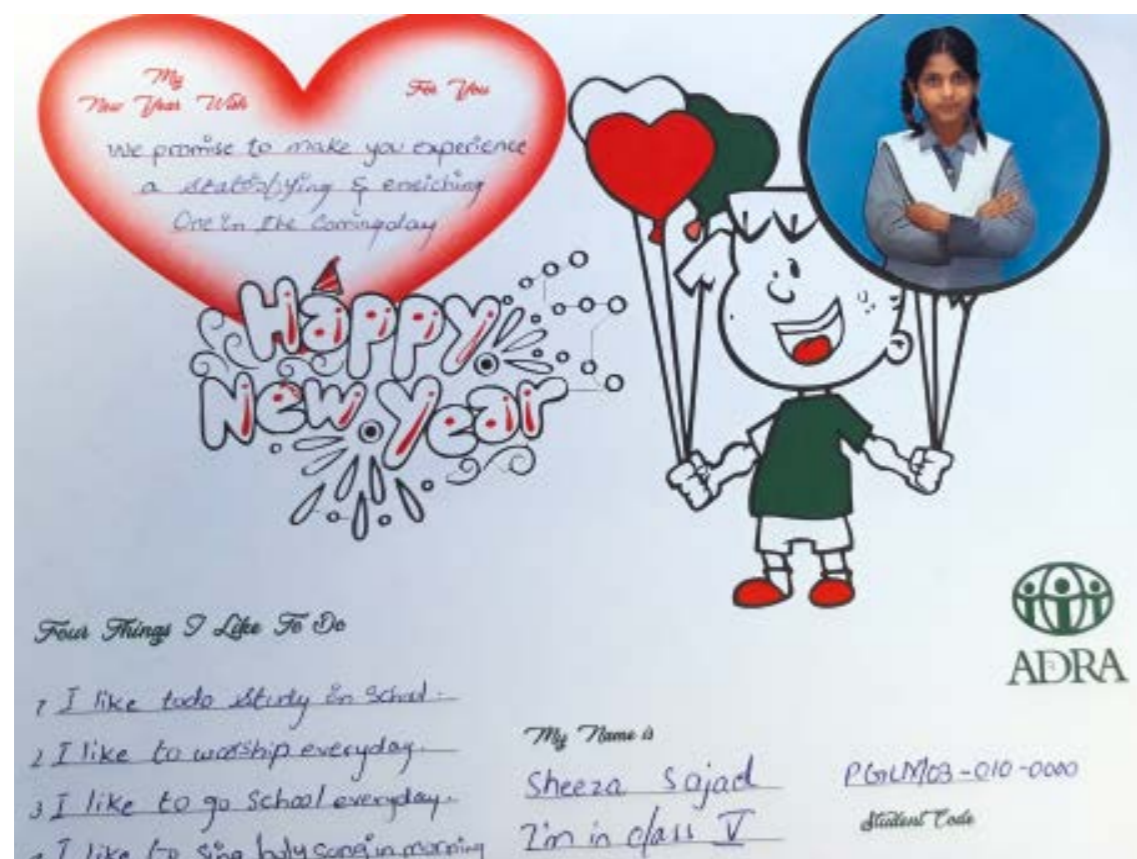 My
New Year Wish For You
We promise to make you experience
a statisfying & enriching
One in the Comingday
Happy
New Year
Four Things I Like To Do
ADRA
1 I like todo study in School.
2 I like to worship everyday.
3 I like to go School everyday.
I like to sing holy song in morning
My Name is
Sheeza Sajad
I'm in class V
Student Code